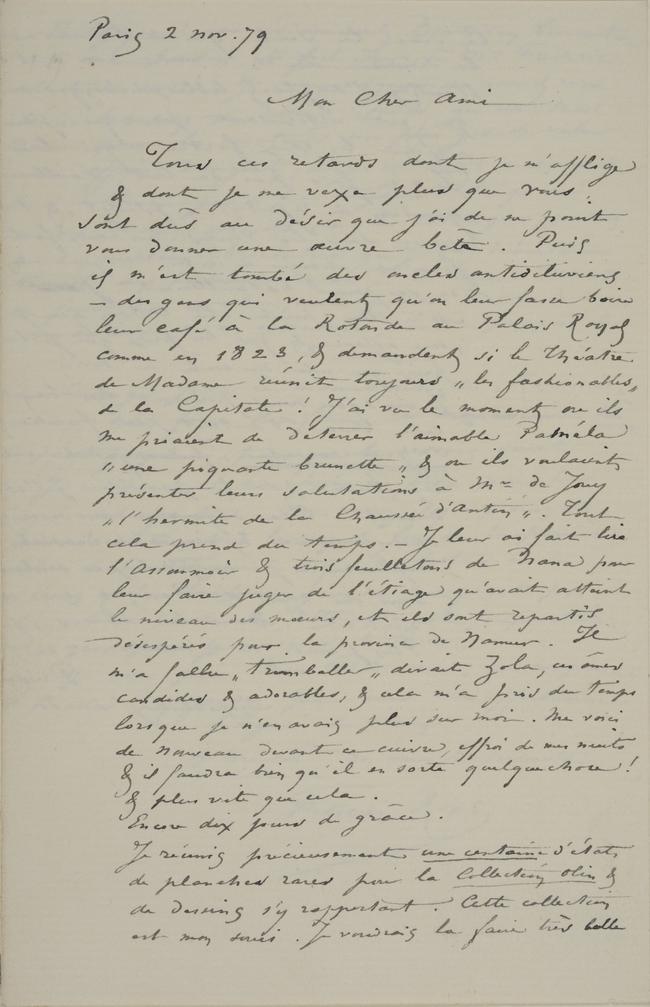 Paris 2 nov. 79
Mon Cher Ami
Tous ces retards dont je m'afflige
& dont je me vexe plus que vous.
sont dûs au désir que j'ai de ne point
vous donner une œuvre bête. Puis
il m'est tombé des oncles antidiluviens
— des gens qui veulent qu'on leur fasse boire
leur café à la Rotonde au Palais Royal
comme en 1823, & demandent si le théâtre
de Madame réunit toujours „les fashionables„
de la Capitale ! J'ai vu le moment où ils
me priaient de déterrer l'aimable Paméla
„une piquante brunette„ & où ils voulaient
présenter leurs salutations à Mr de Jouy
„l'hermite de la Chaussée d'Antin„. Tout
cela prend du temps. — Je leur ai fait lire
l'Assommoir & trois feuilletons de Nana pour
leur faire juger de l'étiage qu'avait atteint
le niveau des mœurs, et ils sont repartis
désespérés pour la province de Namur. Il
m'a fallu „trimballer„ dirait Zola, ces âmes
candides & adorables, & cela m'a pris du temps
lorsque je n'en avais plus sur moi. Me voici
de nouveau devant ce cuivre, effroi de mes nuits
& il faudra bien qu'il en sorte quelque chose !
& plus vite que cela.
Encore dix jours de grâce.
Je réunis précieusement une centaine d'états
de planches rares pour la Collection Olin &
de dessins s'y rapportant. Cette collection
est mon souci. Je voudrais la faire très belle